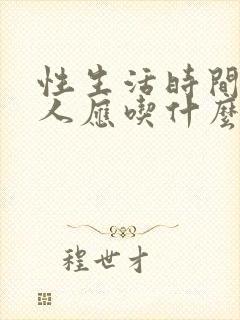 性生活時間
人應喫什麼
程世才